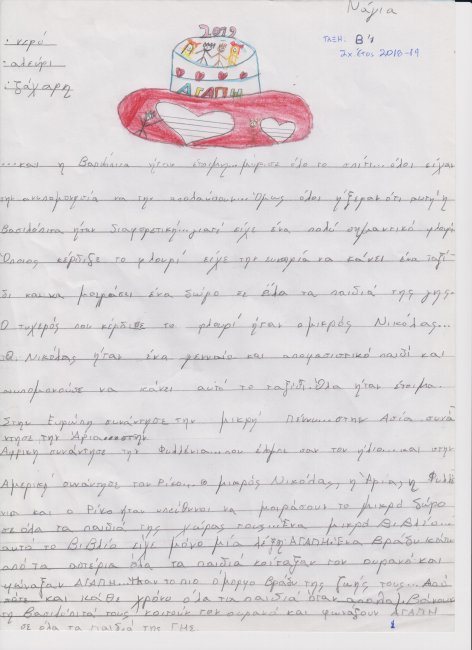 Νάγια
ΤΑΞΗ: Β'1
Σχ. Έτος 2018-19
· νερό
· αλεύρι
· ζάχαρη
2019
ΑΓΑΠΗ
...και η Βασιλόπιτα ήταν έτοιμη... μύρισε όλο το σπίτι... όλοι είχαν
την ανυπομονησία να την απολαύσουν... Όμως όλοι ήξεραν ότι αυτή η
Βασιλόπιτα ήταν διαφορετική... γιατί είχε ένα πολύ σημαντικό φλουρί
Όποιος κέρδιζε το φλουρί είχε την ευκαιρία να κάνει ένα ταξί-
δι και να μοιράσει ένα δώρο σε όλα τα παιδιά της γης.
Ο τυχερός που κέρδισε το φλουρί ήταν ο μικρός Νικόλας...
Ο Νικόλας ήταν ένα γενναίο και αποφασιστικό παιδί και
ανυπομονούσε να κάνει αυτό το ταξίδι. Όλα ήταν έτοιμα.
Στην Ευρώπη συνάντησε την μικρή ... στην Ασία συνά
ντησε την Άρια... στην
Αφρική συνάντησε την ... που έλαμπε σαν τον ήλιο... και στην
Αμερική συνάντησε τον Ρίκο... ο μικρός Νικόλας, η Άρια, η
και ο Ρίκο ήταν υπεύθυνοι να μοιράσουν το μικρό δώρο
σε όλα τα παιδιά της χώρας τους... Ένα μικρό Βιβλίο...
αυτό το Βιβλίο είχε μόνο μία λέξη ΑΓΑΠΗ. Ένα Βράδυ κάτω
από τα αστέρια όλα τα παιδιά κοίταξαν τον ουρανό και
φώναξαν ΑΓΑΠΗ. Ήταν το πιο όμορφο Βράδυ της ζωής τους... Από
τότε και κάθε χρόνο όλα τα παιδιά όταν
τη Βασιλόπιτά τους κοιτούν τον ουρανό και φωνάζουν ΑΓΑΠΗ
σε όλα τα παιδιά της ΓΗΣ
1